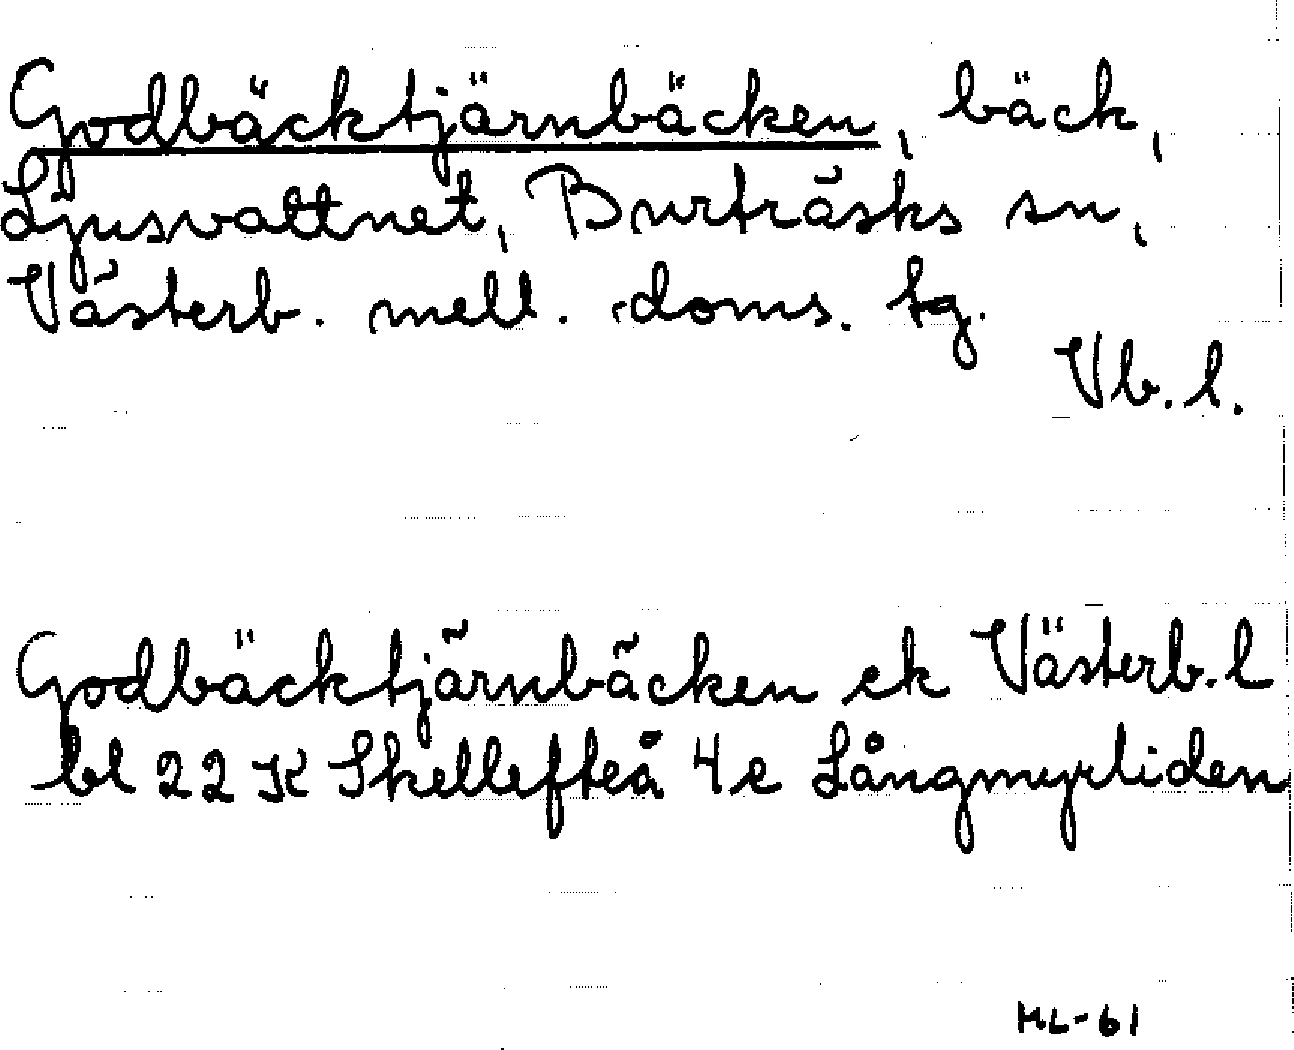 Godbäcktjärnbäcken, bäck,
Ljusvattnet, Burträsks sn,
Västerb. mell. doms. tg.
Vb. l.
Godbäcktjärnbäcken ek Västerb. l
bl 22 K Skellefteå 4e Långmyrliden
HL-61